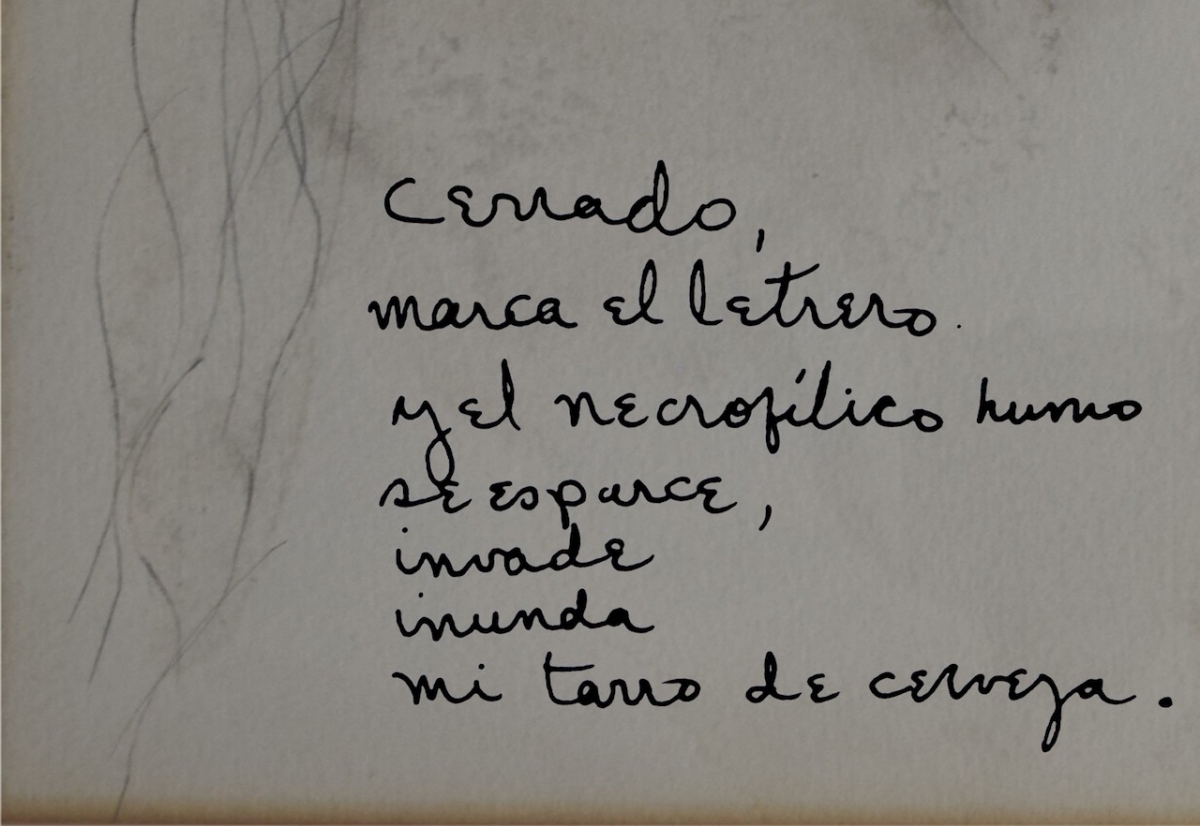 Cerrado,
marca el letrero.
y el necrofílico humo
se esparce,
invade
inunda
mi tarro de cerveza.